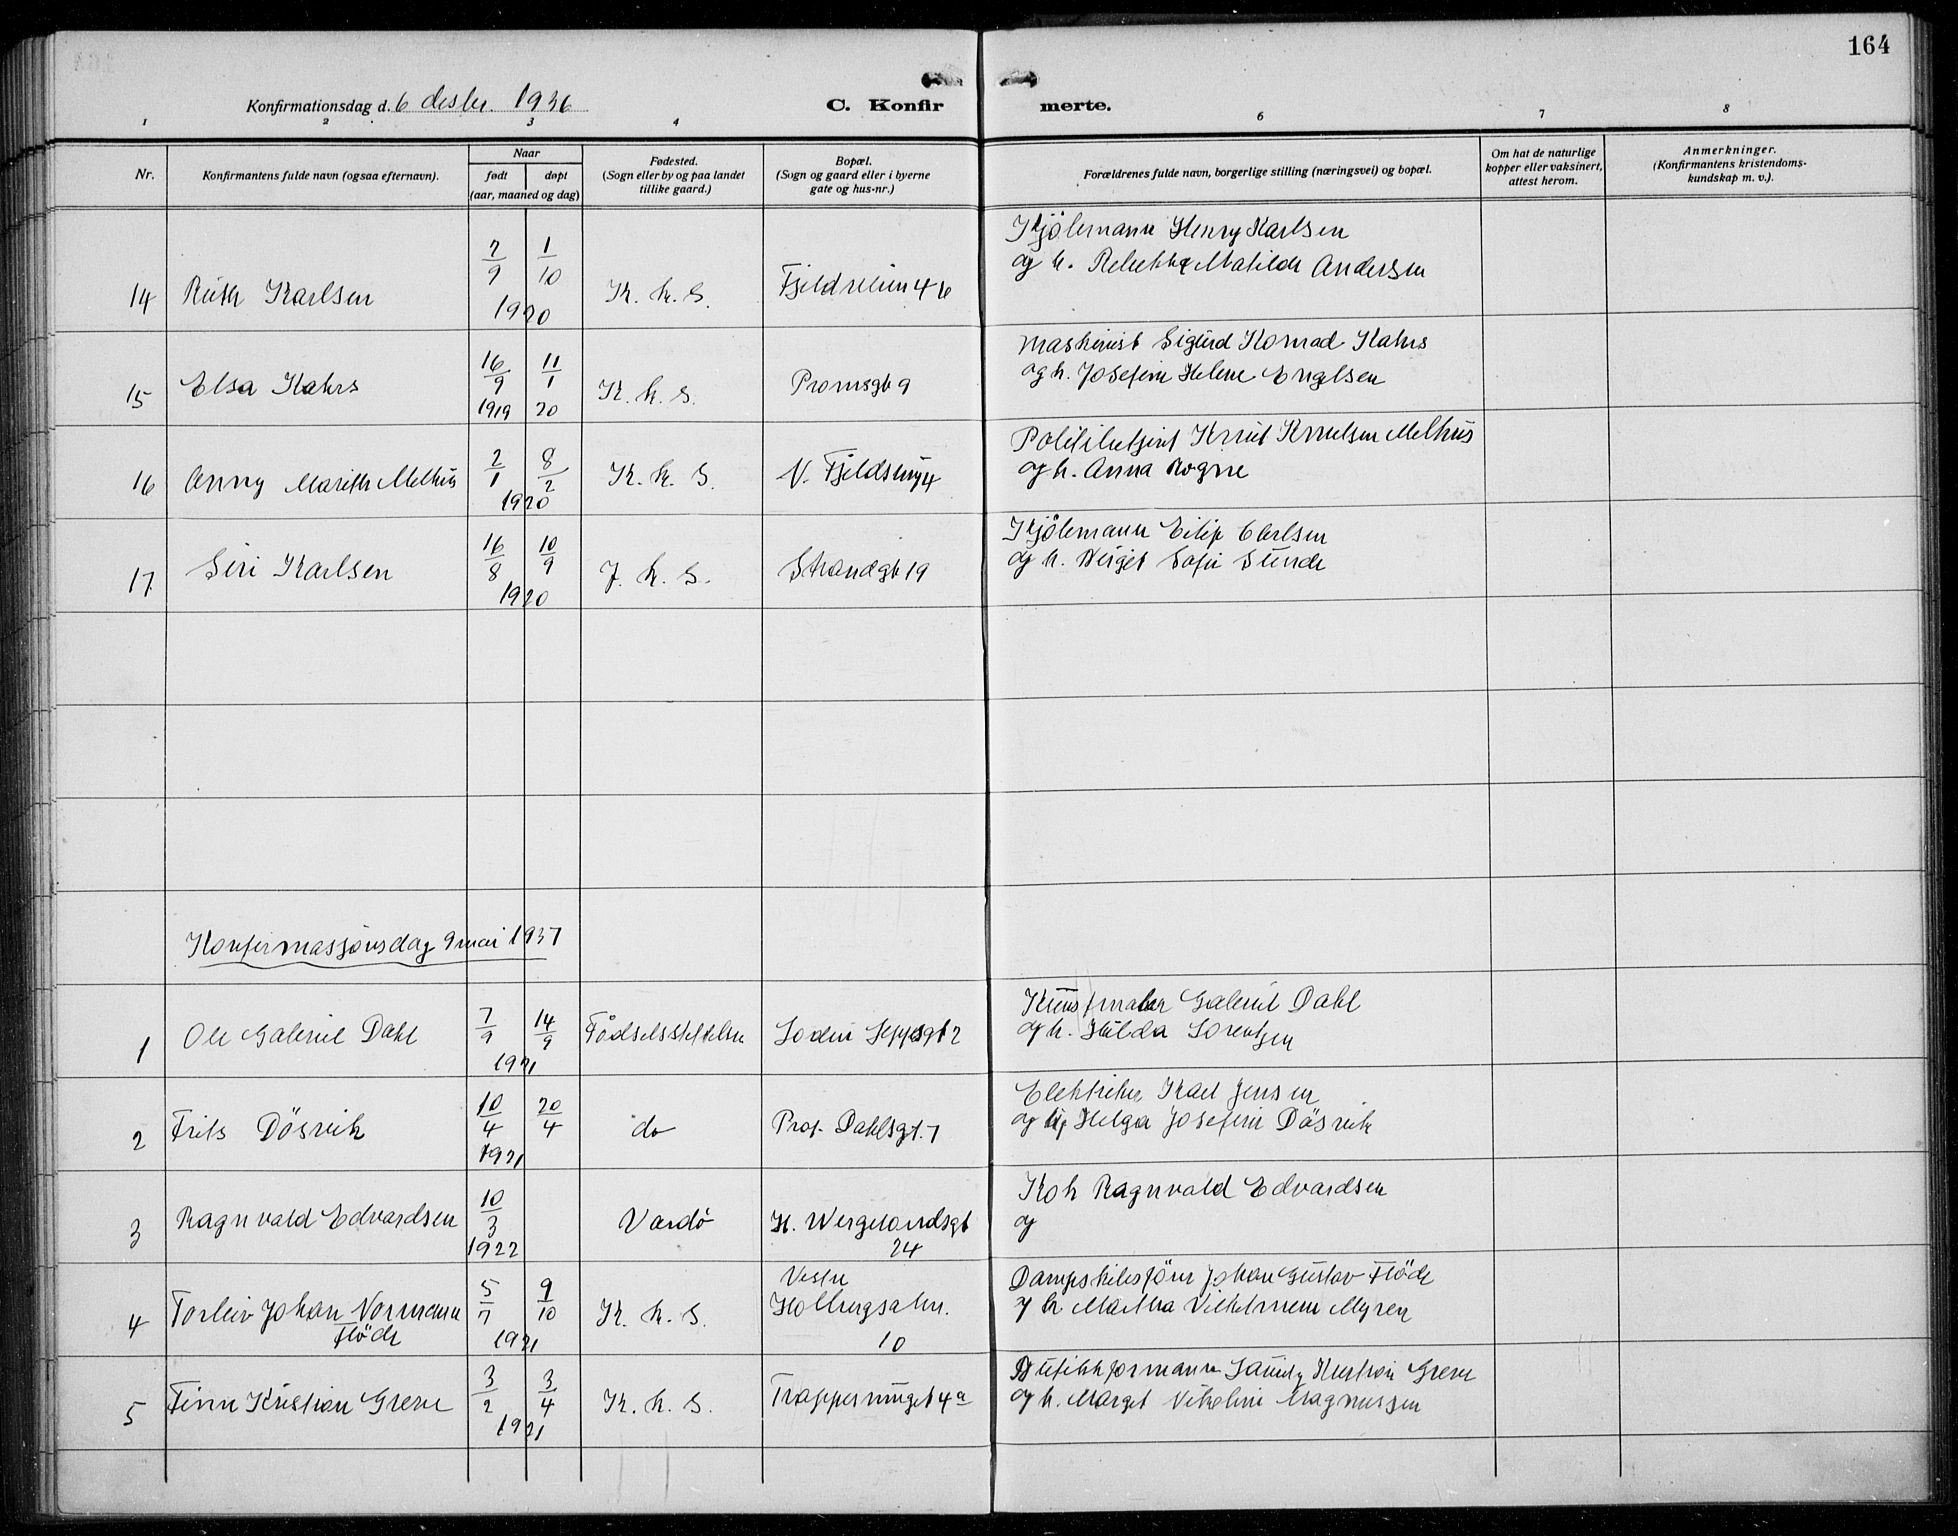 164
Konfirmationsdag d. 6 desbr. 1936
C. Konfirmerte.
1 2 3 4 6 7 8
Nr.
Konfirmantens fulde navn (ogsaa efternavn).
Naar
født døpt
(aar, maaned og dag)
Fødested.
(Sogn eller by og paa landet
tillike gaard.)
Bopæl.
(Sogn og gaard eller i byerne
gate og hus-nr.)
Forældrenes fulde navn, borgerlige stilling (næringsvei) og bopæl.
Om hat de naturlige
kopper eller vaksinert,
attest herom.
Anmerkninger.
(Konfirmantens kristendoms-
kundskap m. v.).
14 Ruth Karlsen 7/9 1/10 1920 K. k. S. Fjeldveien 46
Kjölemann Henry Karlsen
og h. Rebekka Matilde Andersen
15 Elsa Kahrs 16/9 1919 11/1 20 K. k. S. Promsgt 9
Maskinist Sigurd Konrad Kahrs
og h. Josefine Helene Engelsen
16 Anny Marith Melhus 2/1 8/2 1920 K. k. S. N. Fjeldsmug 4
Politibetjent Knut Knutsen Melhus
og h. Anna Rogne
17 Siri Karlsen 16/8 10/9 1920 J. k. S. Strandgt 19
Kjölemann Eilif Karlsen
og h. Sofie Sunde
Konfirmasjonsdag 9 mai 1937
1 Ole Gabriel Dahl 7/9 14/9 1921 Födselsstiftelsen Lodin Leppsgt 2
Kunstmaler Gabriel Dahl
og h. Hilda Lorentzen
2 Frits Dösvik 10/4 20/4 1921 do Prof. Dahlsgt. 7
Elektriker Karl Jensen
og Helga Josefine Dösvik
3 Ragnvald Edvardsen 10/3 1922 Vardö H. Wergelandsgt
24
Kok Ragnvald Edvardsen
og
4 Torleiv Johan Normann
Flöde
5/7 9/10 1921 K. k. S. Vestre
Holbergsalm.
10
Dampskibsförer Johan Gustav Flöde
og h. Martha Vilhelmine Myren
5 Finn Kristian Greve 3/2 3/4 1921 K. k. S. Trappesmuget 4a
Kristian Greve
og h. Marget Vilhelmine Magnussen